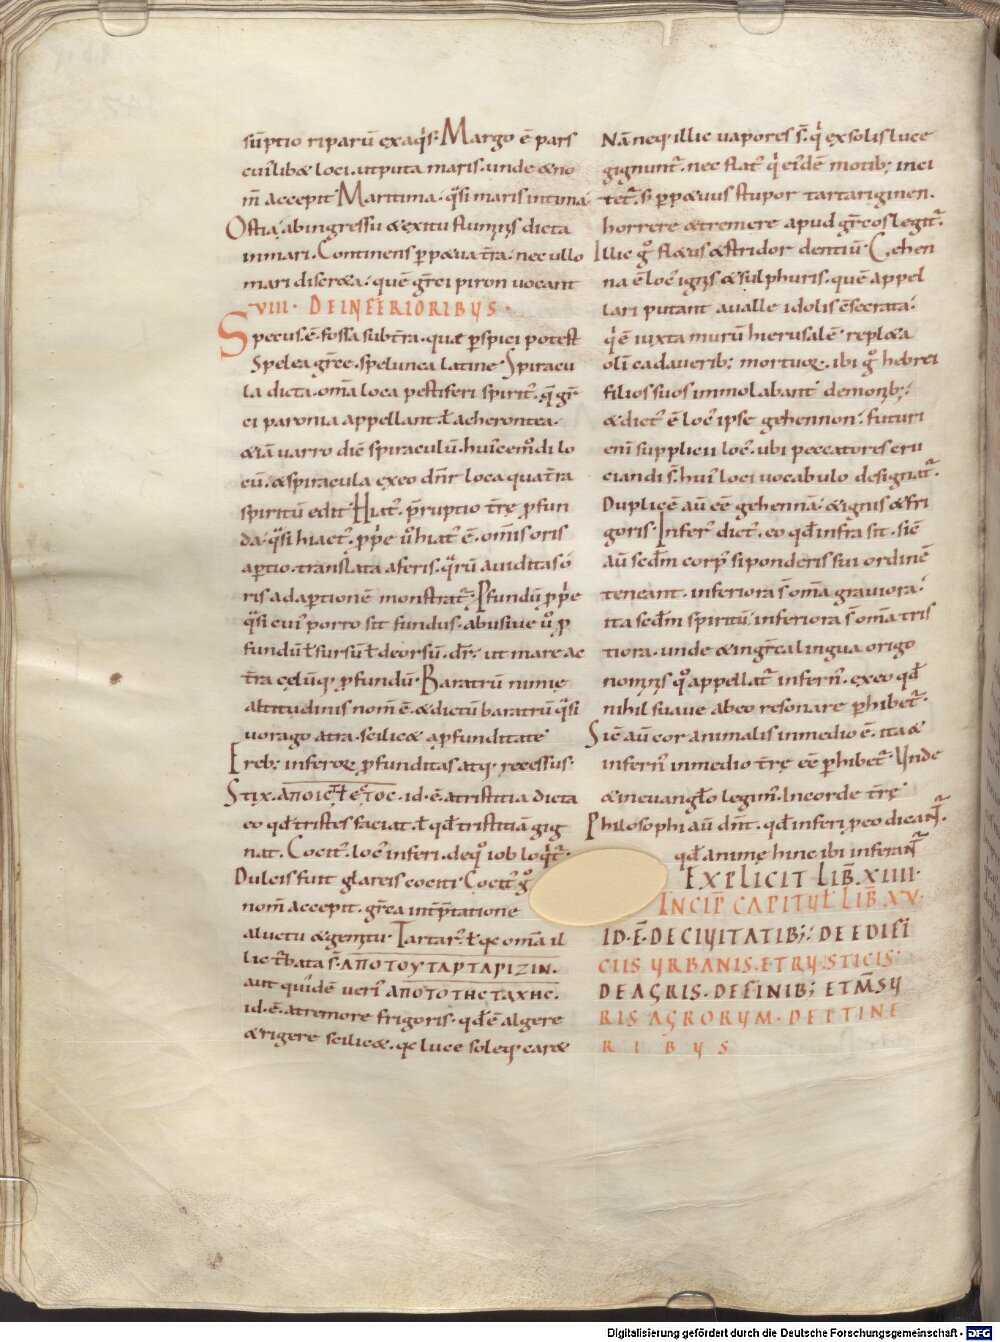 sūptio riparū exaq̓s. Margo ē pars
cui᾽lib& loci. utputa maris. unde &no
m̄ accepit Maritima. q̓si maris intima
Ostia; abingressu &exitu fluminis dicta
inmari. Continens ꝑp&ua t̄ra; nec ullo
mari discr&a; quē grēci piron uocant
VIIII. DEINFERIORIBUS.
Specus.ē. fossa subt̄ra. quę ꝑspici potest
Spelea grēce. spelunca latine. Spiracu
la dicta. om̄a loca pestiferi spirit᾽. q̄ grę
ci paronia appellant. ł acherontea.
&iā uarro diē spiraculū. hui᾽cemodi lo
cū. &spiracula exeo dn̄r loca quat̄ra
spiritū edit. Hiat᾽. p̄ruptio t̄rę ꝓfun
da. q̓si hiaet᾽. ꝓp̄e u̓ hiat᾽ ē. om̄is oris
aꝑtio. translata aferis. q̓rū auiditas o
ris adaꝑtionē monstrat᾽. Ꝓfundū ꝓp̄e
q̓si cui᾽ porro sit fundus. abusiue u̓ ꝓ
fundū ł sursū ł deorsū. dr̄. ut mare ac
t̄ra cęlūq; ꝓfundū. Baratrū nimię
altitudinis nom̄ ē. &dictū baratrū q̓si
uorago atra. scilic& aꝓfunditate
Ereb᾽ inferoꝝ ꝓfunditas atq; recessus.
Stix. ΑΠΟΙϹΤΕΤΟϹ. id.ē. atristitia dicta
eo qd̄ tristes faciat. ł qd̄ tristitiā gig
nat. Cocit᾽. loc᾽ inferi. deq̓ iob loq̓t᾽.
Dulcis fuit glareis cociti. Cocit᾽ g̓
nom̄ accepit. grēca int̄ꝑtatione
aluctu &gemitu. Tartar᾽. ł qc om̄a il
lic t᾽bata s̄. ΑΠΟΤΟΥΤΑΡΤΑΡΙΖΙΝ.
aut quidē ueri᾽ ΑΠΟΤΟΤΗϹΤΑΧΗϹ.
id.ē. atremore frigoris. qd̄ ē algere
&rigere scilic&. qc luce soleq; car&
Nā neq; illic uapores s̄. q̓ exsolis luce
gignunt᾽. nec flat᾽ q̓ ei᾽dē motib; inci
tet᾽. s; ꝑp&uus stupor tartariginen.
horrere &tremere apud grēcos legit᾽.
Illic g̓ fl&us &stridor dentiū. Gehen
na ē loc᾽ ignis &sulphuris. quē appel
lari putant aualle idolis c̄secrata.
q̓ ē iuxta murū hierusalē repl&a
olī cadauerib; mortuoꝝ. ibi g̓ hebrei
filios suos immolabant demonib;
&dict᾽ ē loc᾽ ipse gehennon. futuri
eni᾽ supplicii loc᾽. ubi peccatores cru
ciandi s̄. hui᾽ loci uocabulo designat᾽.
Duplicē aū eē gehennā. &ignis &fri
goris. Infer᾽ dict᾽. eo qd̄ infra sit. sic̄
aū scd̄m corp᾽ siponderis sui ordinē
teneant. inferiora s̄ om̄a grauiora.
ita scd̄m spiritū. inferiora s̄ om̄a tris
tiora. unde &ingrēca lingua origo
nominis q̓ appellat᾽ infern᾽. exeo qd̄
nihil suaue abeo resonare ꝑhibet᾽.
Sic̄ aū cor animalis inmedio ē. ita &
infern᾽ inmedio t̄rę eē ꝑhibet᾽. Unde
&ineuanglīo legim᾽. Incorde t̄rę
Philosophi aū dn̄t. qd̄ inferi ꝓeo dicant᾽.
qd̄ animę hinc ibi inferant᾽
EXPLICIT LIB̄. XIIII.
INCIP̄ CAPITUL̄ LIB̄. XV.
ID.Ē. DECIUITATIB; DEEDIFI
CIIS URBANIS. ETRUSTICIS.
DEAGRIS. DEFINIB; ETM̄SU
RIS AGRORUM. DEITINE
RIBUS
Digitalisierung gefördert durch die Deutsche Forschungsgemeinschaft - DFG